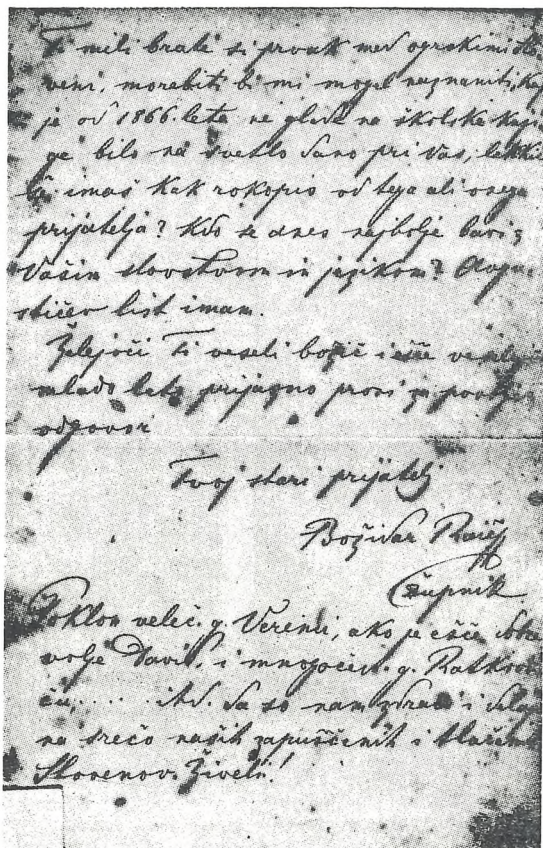 Ti mili brate si prvak med ogrskimi slo
veni, morebiti bi mi mogel naznaniti, kaj
je od 1866. leta ne glede na školske knji
ge bilo na svetlo dano pri Vas, lehko
imaš kak rokopis od tega ali onega
prijatelja? Kdo se dnes najbolje bavi z
Vašim slovstvom in jezikom? Avgu-
stičev list imam.
Želejoči Ti veseli božič i ešče veselejše
mlado leto prijazno prosi za
odgovor
Tvoj stari prijatelj
Božidar Raič
župnik
Poklon veleč. g. Vereni, ako je ešče dobre
volje David, i mnogočest. g. Ratkovi
ču..... itd. da so nam zdravi i delajo
na srečo naših zapuščenih i tlačenih
Slovenov. Živeli!